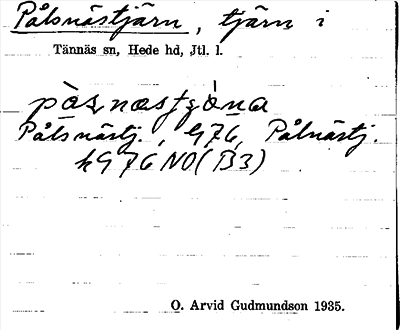 Pålsnästjärn, tjärn i
Tännäs sn, Hede hd, Jtl. l.
Pålsnästj., G76, Pålnästj.
kG76NO(B3)
O. Arvid Gudmundson 1935.